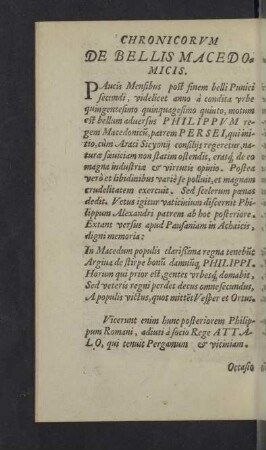 CHRONICORVM
DE BELLIS MACEDO-
MICIS.
PAucis Mensibus post finem belli Punici
secundi, videlicet anno à condita vrbe
quingentesimo quinquagesimo quinto, motum
est bellum aduersus PHILIPPVM re-
gem Macedonicũ, patrem PERSEI, qui ini-
tio, cùm Arati Sicyonij consilijs regeretur, na-
turæ sæuiciam non statim ostendit, eratq́; de eo
magna industriæ & virtutis opinio. Postea
verò et libidinibus varijs se polluit, et magnam
crudelitatem exercuit. Sed scelerum penas
dedit. Vetus igitur vaticinium discernit Phi-
lippum Alexandri patrem ab hoc posteriore.
Extant versus apud Pausaniam in Achaicis,
digni memoria:
In Macedum populis clarißima regna tenebũt
Argiua de stirpe bonũ damnũq́; PHILIPPI.
Horum qui prior est, gentes vrbesq́; domabit,
Sed veteris regni perdet decus omne secundus,
A populis victus, quos mittẽt Vesper et Ortus.
Vicerunt enim hunc posteriorem Philip-
pum Romani, adiuti à socio Rege ATTA-
LO, qui tenuit Pergamum & viciniam.
Occasio